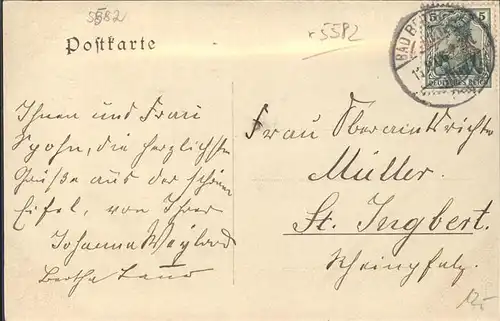 5582
r 5582
Postkarte
5 5
BAD BE
DEUTSCHES REICH
Ihnen und Frau
Spohn, die herzlichsten
Grüße aus der schönen
Eifel, von Ihrer
Johanna Weyland
Bertha
Frau Oberamtsrichter
Müller.
St. Ingbert.
Rheinpfalz.
12.-